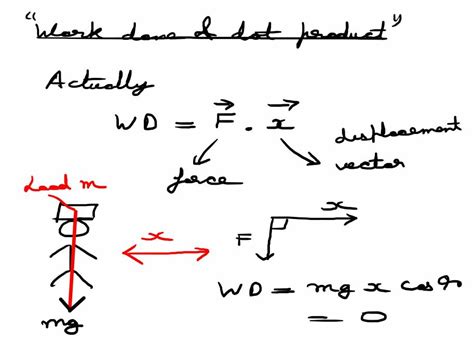 "Work done & dot product"
Actually
WD = F⃗ . x⃗
force
displacement
vector
Load m
x
mg
x
F
WD = mg x cos 90
= 0